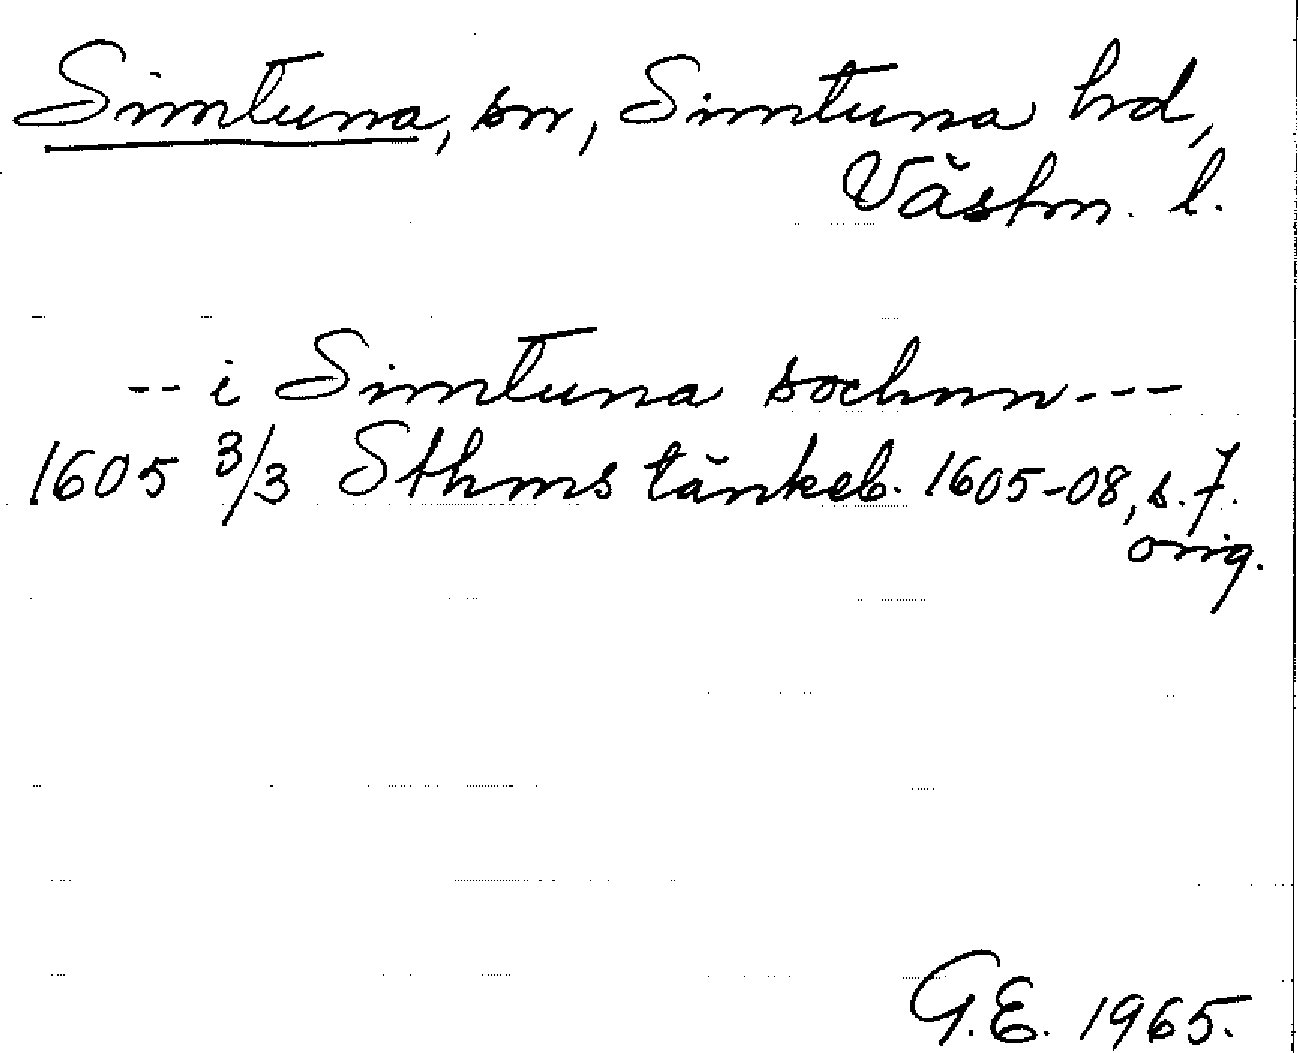 Simtuna, sn, Simtuna hd,
Västm. l.
-- i Simtuna sochnn---
1605 3/3 Sthms tänkeb. 1605-08, s. 7.
orig.
G.E. 1965.